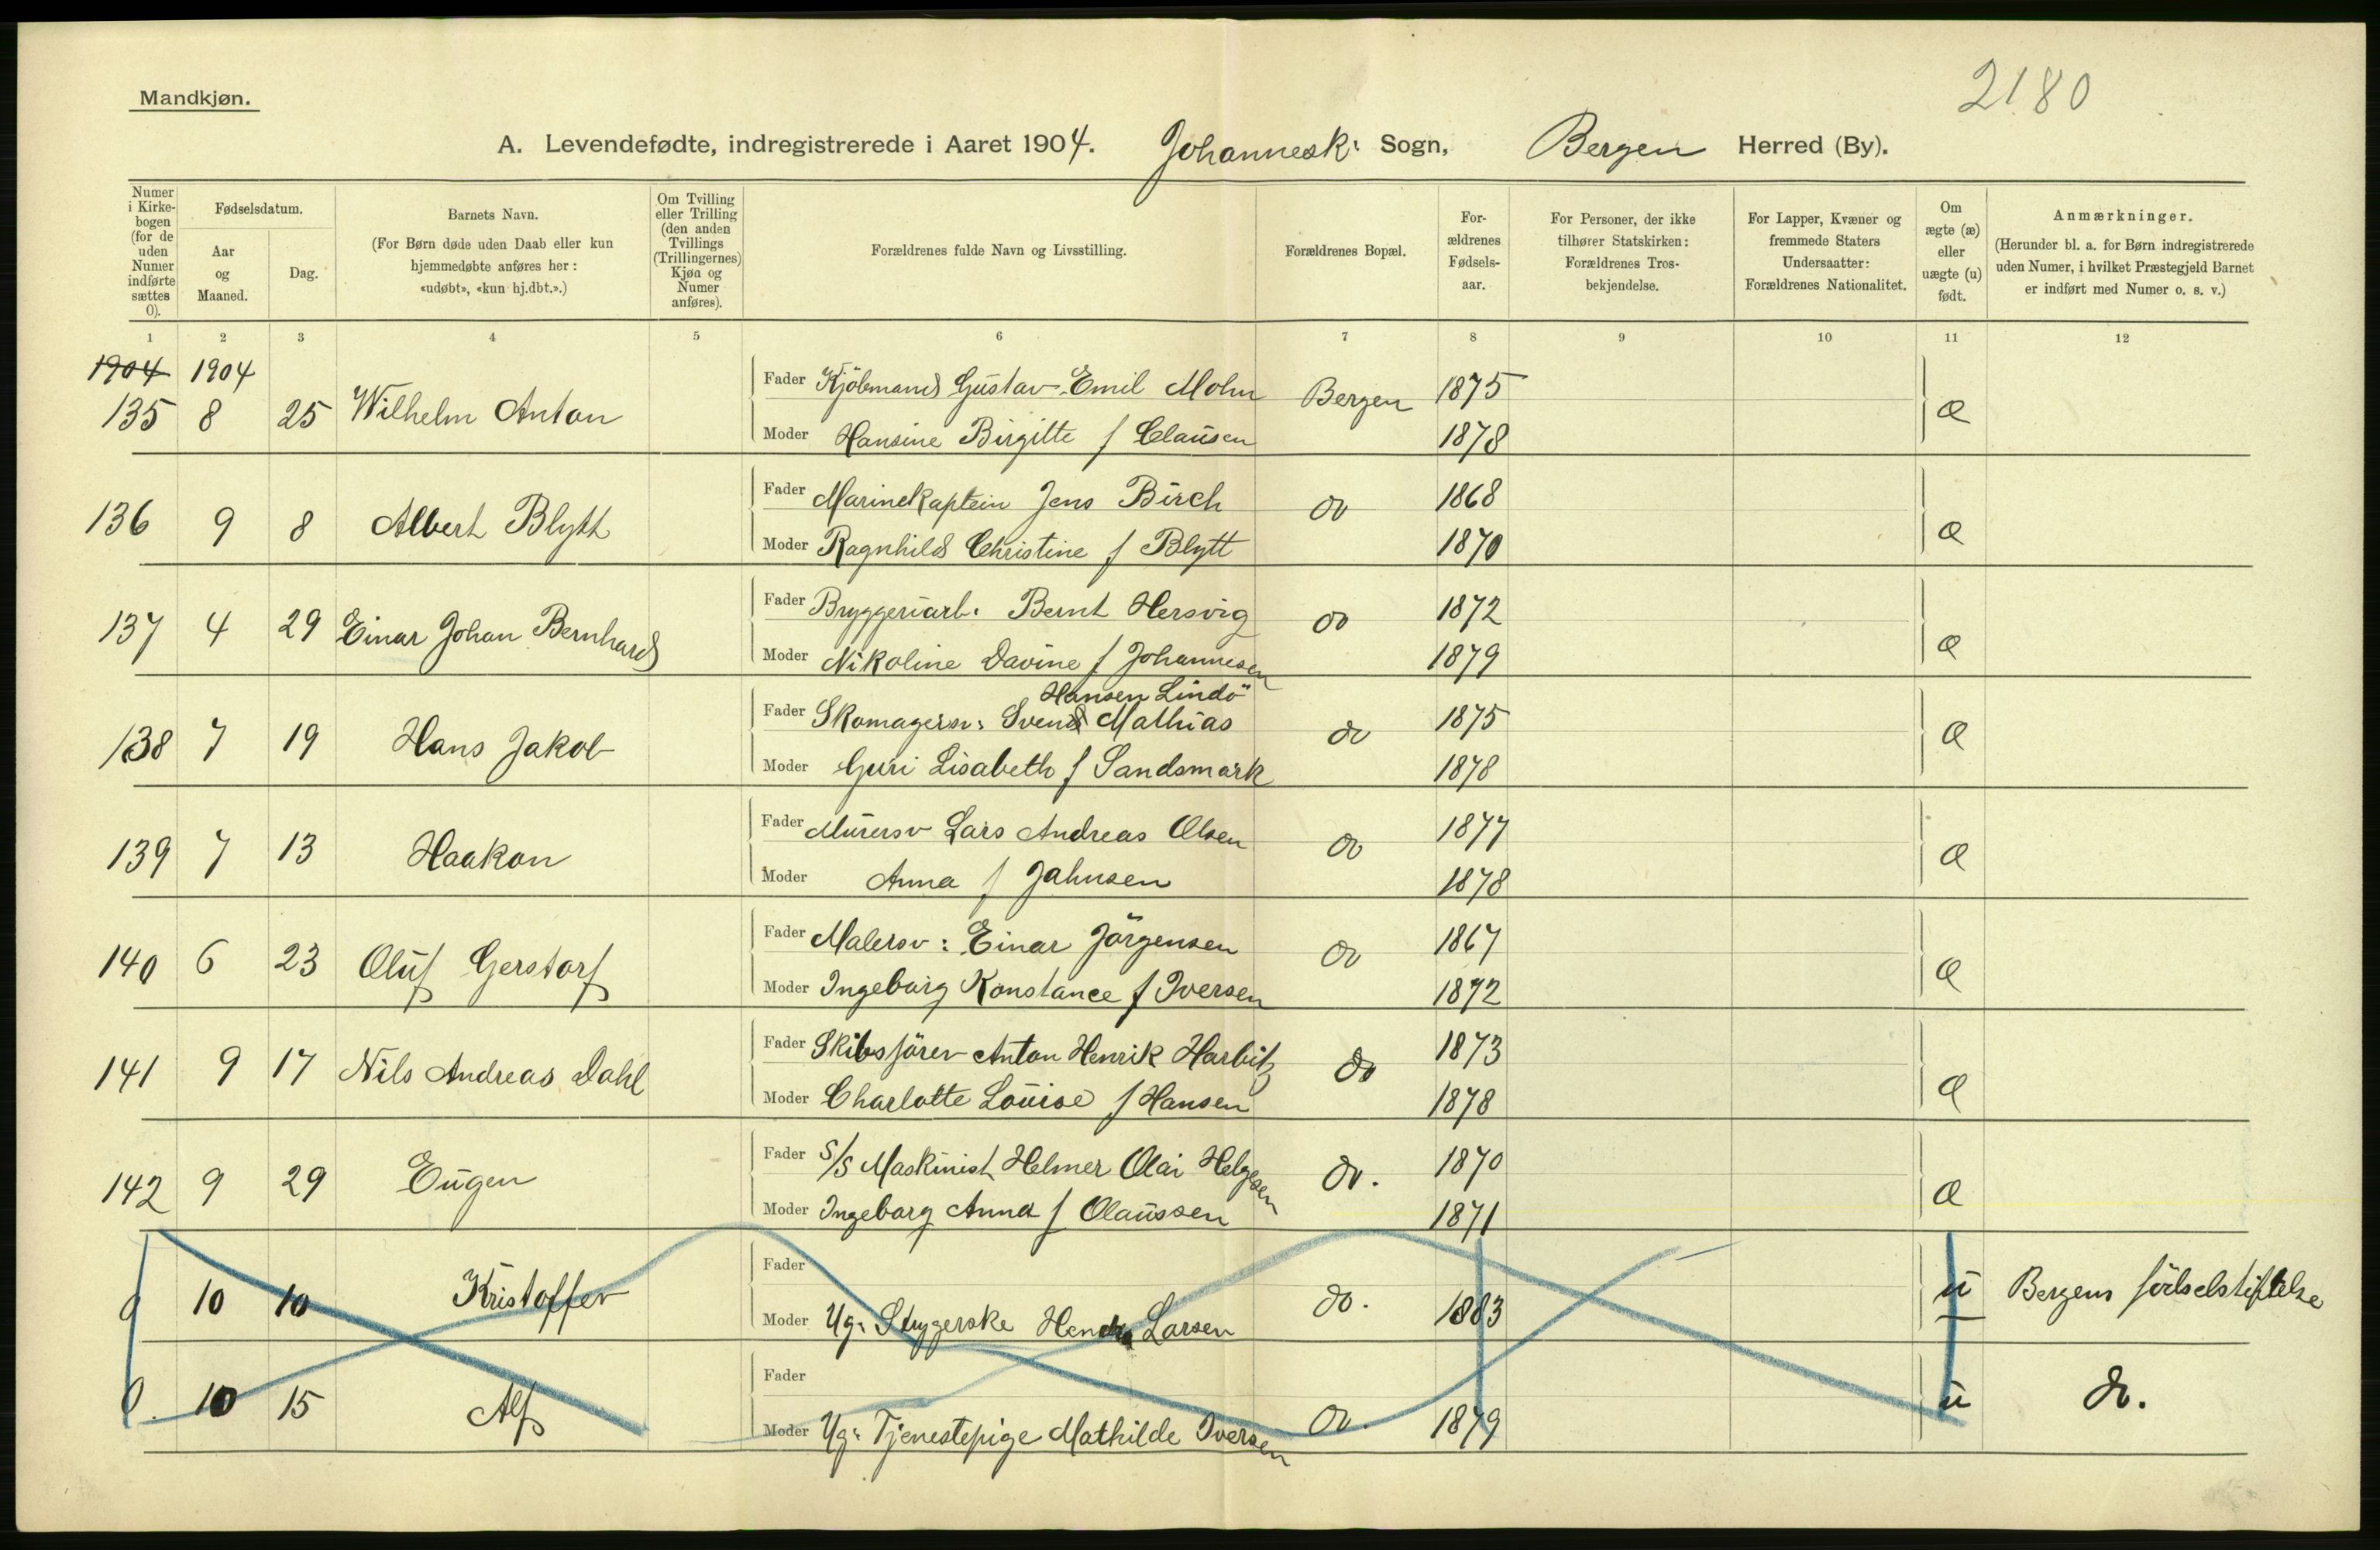 2180
Mandkjøn.
A. Levendefødte, indregistrerede i Aaret 1904. Johannesk: Sogn, Bergen Herred (By).
Numer i Kirkebogen (for de uden Numer indførte sættes 0).
Fødselsdatum.
Aar og Maaned.
Dag.
Barnets Navn.
(For Børn døde uden Daab eller kun hjemmedøbte anføres her: «udøbt», «kun hj.dbt.».)
Om Tvilling eller Trilling (den anden Tvillings (Trillingernes) Kjøn og Numer anføres).
Forældrenes fulde Navn og Livsstilling.
Forældrenes Bopæl.
Forældrenes Fødselsaar.
For Personer, der ikke tilhører Statskirken: Forældrenes Trosbekjendelse.
For Lapper, Kvæner og fremmede Staters Undersaatter: Forældrenes Nationalitet.
Om ægte (æ) eller uægte (u) født.
Anmærkninger.
(Herunder bl. a. for Børn indregistrerede uden Numer, i hvilket Præstegjeld Barnet er indført med Numer o. s. v.)
1 2 3 4 5 6 7 8 9 10 11 12
1904 1904
135 8 25 Wilhelm Anton Fader Kjöbmand Gustav Emil Mohn Bergen 1875 æ
Moder Hansine Birgitte f Clausen 1878
136 9 8 Albert Blytt Fader Marinekaptein Jens Birch do 1868 æ
Moder Ragnhild Christine f Blytt 1870
137 4 29 Einar Johan Bernhard Fader Bryggeriarb. Bernt Hersvig do 1872 æ
Moder Nikoline Davine f Johannesen 1879
Hansen Lindö
138 7 19 Hans Jakob Fader Skomagersv: Svend Mathias do 1875 æ
Moder Guri Lisabeth f Sandsmark 1878
139 7 13 Haakon Fader Murersv Lars Andreas Olsen do 1877 æ
Moder Anna f Jahnsen 1878
140 6 23 Oluf Gerstorf Fader Malersv: Einar Jörgensen do 1867 æ
Moder Ingeborg Konstance f Iversen 1872
141 9 17 Nils Andreas Dahl Fader Skibsförer Anton Henrik Harbitz do 1873 æ
Moder Charlotte Louise f Hansen 1878
142 9 29 Eugen Fader S/S Maskinist Helmer Olai Helgesen do. 1870 æ
Moder Ingeborg Anna f Olaussen 1871
0 10 10 Kristoffer Fader do. 1883 u Bergens födselstiftelse
Moder Ug: Strygerske Larsen
0. 10 15 Alf Fader do. 1879 u do.
Moder Ug: Tjenestepige Mathilde Iversen